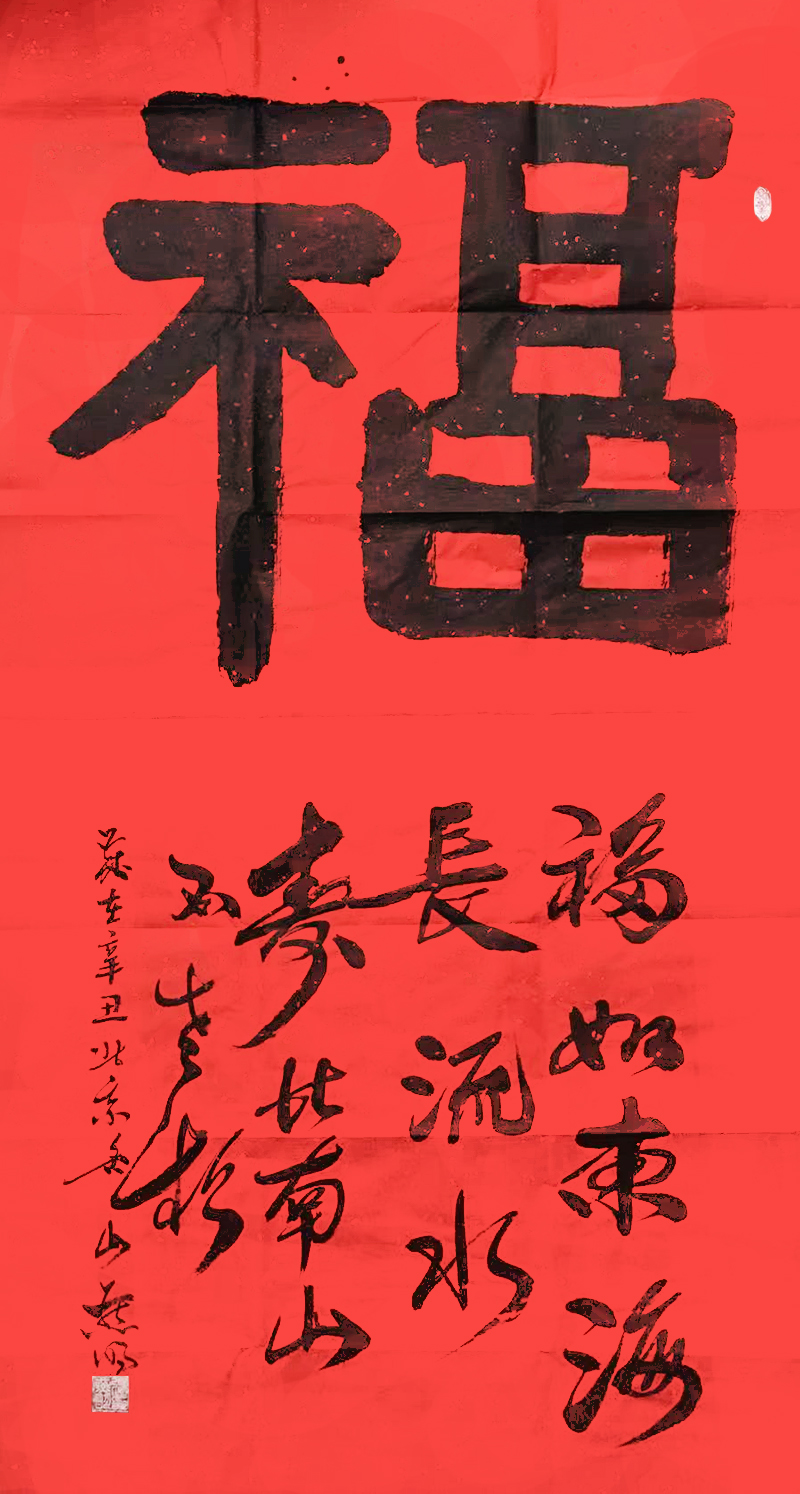 福
福如東海
長流水
壽比南山
不老松
歲在辛丑北京香山